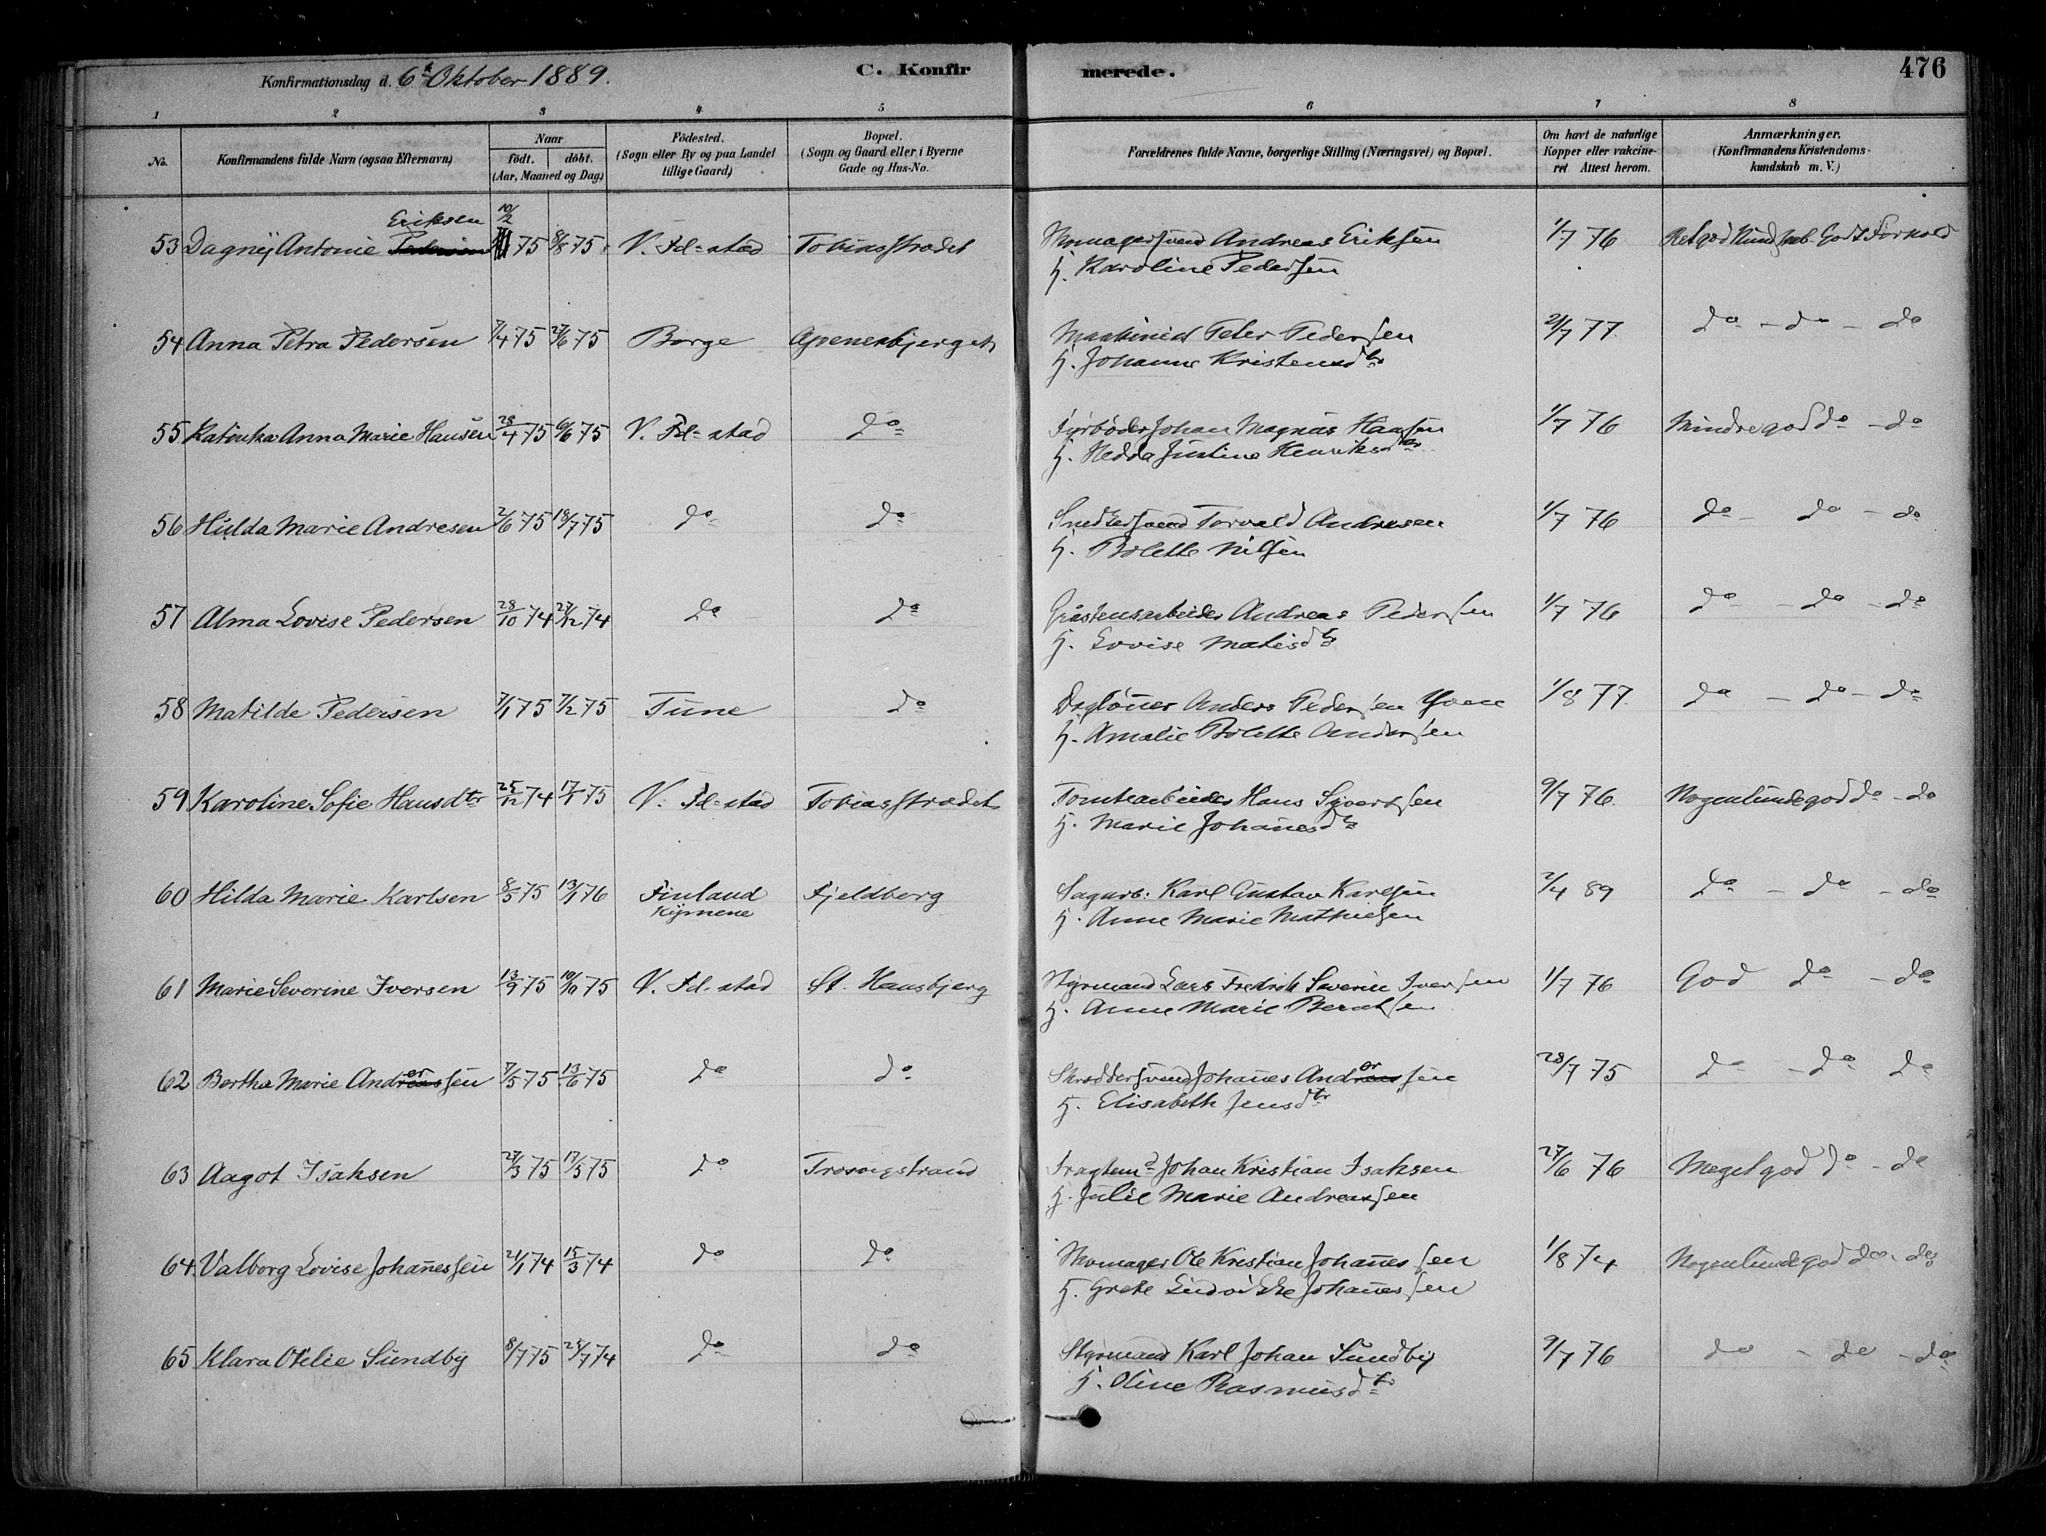 Konfirmationsdag d. 6te Oktober 1889. C. Konfir merede. 476
1 2 3 4 5 6 7 8
No. Konfirmandens fulde Navn (ogsaa Efternavn) Naar födt. döbt. (Aar, Maaned og Dag) Födested. (Sogn eller By og paa Landet tillige Gaard) Bopæl. (Sogn og Gaard eller i Byerne Gade og Hus-No. Forældrenes fulde Navne, borgerlige Stilling (Næringsvei) og Bopæl. Om havt de naturlige Kopper eller vakcineret Attest herom. Anmærkninger. (Konfirmandens Kristendomskundskab m. V.)
Eriksen 10/2
53 Dagny Antonie Pedersen 75 8/8 75 V. Fd-stad Tobiasstrædet Skomagersvend Andreas Eriksen 1/7 76 Ret god Kundskab. Godt Forhold
H. Karoline Pedersen
54 Anna Petra Pedersen 7/4 75 27/6 75 Borge Gjvenesbjerget Maskinist Peter Pedersen 21/7 77. do - do - do
H. Johanne Kristensdtr
55 Katinka Anna Marie Hansen 28/4 75 6/6 75 V. Fd-stad do Fyrbøder Johan Magnus Hansen 1/7 76 Mindre god do - do
H. Hedda Justine Henriksdtr
56 Hulda Marie Andresen 2/6 75 18/7 75 do do Snedkersvend Torvald Andresen 1/7 76 do - do - do
H. Bolette Nilsen
57 Alma Lovise Pedersen 28/10 74 27/12 74 do do Gråstensarbeider Andreas Pedersen 1/7 76 do - do - do
H. Lovise Matisdtr
58 Matilde Pedersen 7/1 75 7/2 75 Tune do Dagløner Anders Pedersen Hven 1/8 77. do - do - do
H. Amalie Bolette Andersen
59 Karoline Sofie Hansdtr 25/12 74 17/1 75 V. Fd-stad Tobiasstrædet Tomtearbeider Hans Syvertsen 9/7 76. Nogenlunde god do - do
H. Marie Johanesdtr
60 Hilda Marie Karlsen 8/5 75 13/1 76 Finland Fjeldberg Sagarb. Karl Gustav Karlsen 2/4 89 do - do - do
Kymene H. Anne Marie Mathiesen
61 Marie Severine Iversen 13/9 75 10/10 75 V. Fd-stad St. Hansbjerg Styrmand Lars Fredrik Severin Iversen 1/7 76 God do - do
H. Anne Marie Berntsen
62 Bertha Marie Andreassen er 7/5 75 13/6 75 do do Skreddersvend Johanes Andreassen er 28/7 75 do - do do
H. Elisabeth Jensdtr
63 Aagot Isaksen 27/3 75 17/5 75 do Trosvigstrand Fragtemd Johan Kristian Isaksen 27/6 76 Meget god do - do
H. Julie Marie Andreassen
64. Valborg Lovise Johannessen 21/1 74 15/3 74 do do Skomager Ole Kristian Johannessen 1/8 74 Nogenlunde god do - do
H. Grete Johannessen
65 Klara Otilie Sundby 8/7 75 25/7 74 do do Styrmand Karl Johan Sundby 9/7 76 do - do - do
H. Oline Rasmusdtr